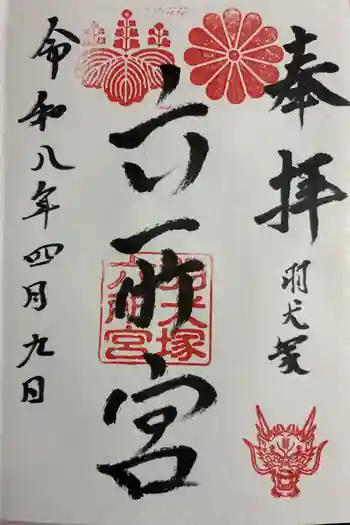 奉拝
羽犬塚
六所宮
羽犬塚
六所宮
令和八年四月九日